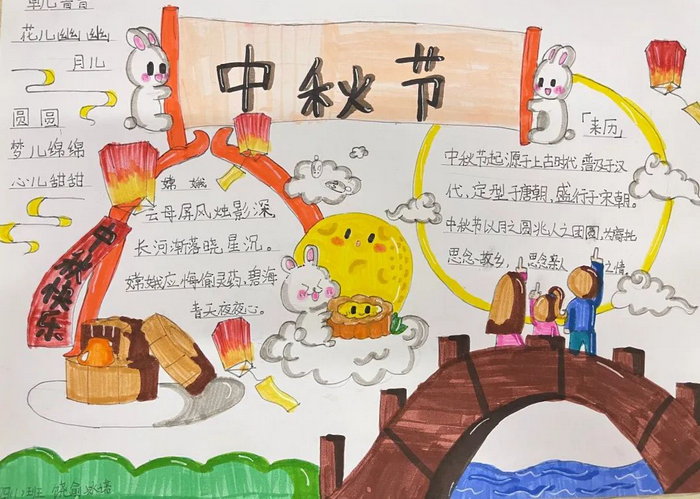 花儿幽幽
月儿
圆圆
梦儿绵绵
心儿甜甜
中秋节
中秋快乐
嫦娥
云母屏风烛影深,
长河渐落晓星沉。
嫦娥应悔偷灵药,碧海
青天夜夜心。
「来历」
中秋节起源于上古时代,普及于汉
代,定型于唐朝,盛行于宋朝。
中秋节以月之圆兆人之团圆,为寄托
思念故乡,思念亲人之情。